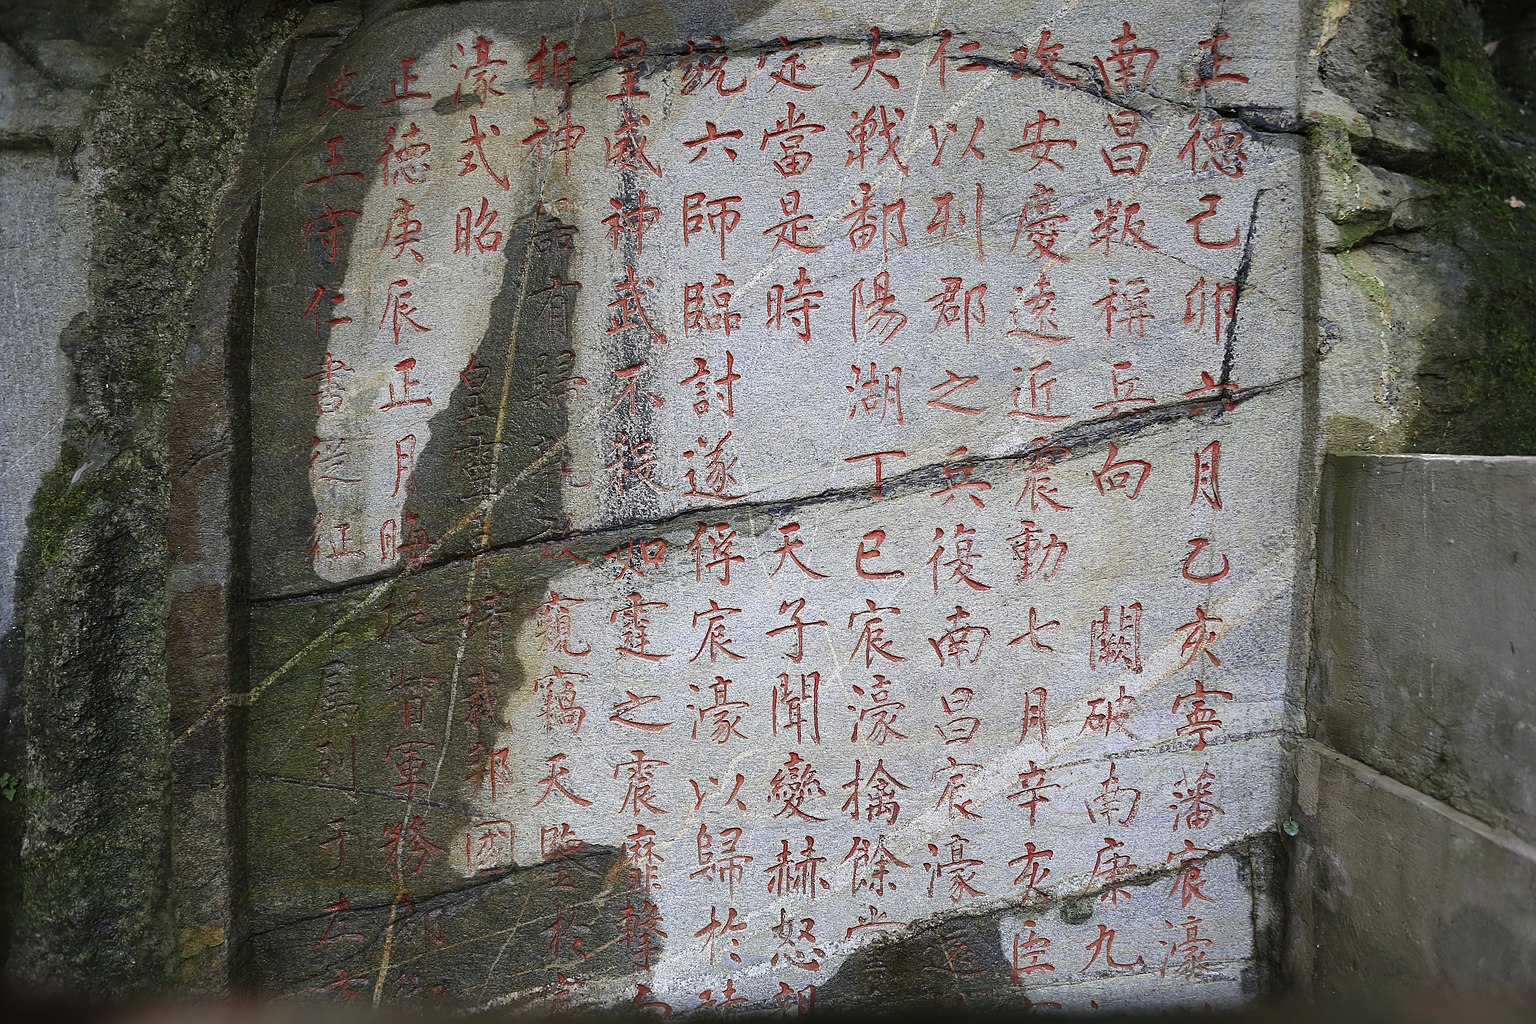 正德己卯六月乙亥寧藩宸濠
南昌叛稱兵向闕破南康九
攻安慶遠近震動七月辛亥臣
仁以列郡之兵復南昌宸濠還
大戰鄱陽湖丁巳宸濠擒餘黨
定當是時天子聞變赫怒親
統六師臨討遂俘宸濠以歸於
皇威神武不殺如霆之震靡擊而
折神器有歸孰敢窺竊天監於宸
濠式昭皇靈嘉靖我邦國
正德庚辰正月晦提督軍務都御
史王守仁書從征官屬列于左方